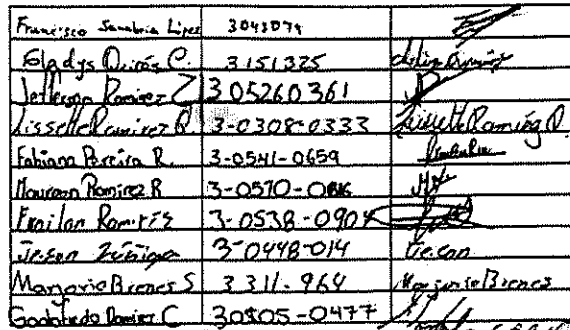 Francisco Sanabria López 3043079
Gladys Quirós C. 3151325
Jefferson Ramirez Z 305260361
Lissette Ramirez Q 3-0308-0333 Lissette Ramírez Q.
Fabiana Pereira R. 3-0541-0659
Maureen Ramirez R 3-0570-0816
Froilan Ramírez 3-0538-0904
Jeison Zúñiga 3-0448-014 Jeison
Marjorie Brenes S 3311-964 Marjorie Brenes
Godofredo Ramirez C 30805-0477